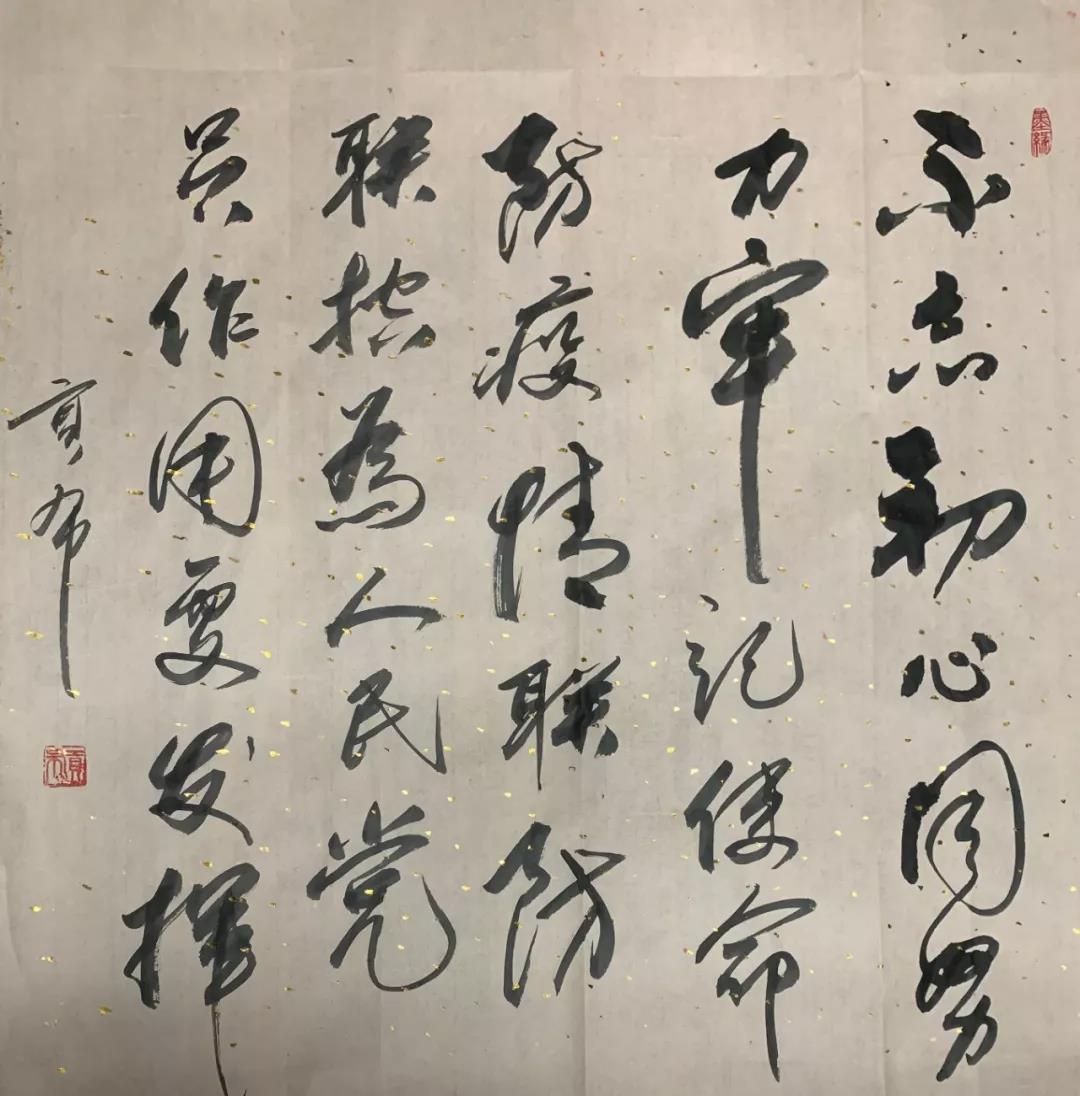 墨缘
不忘初心同努
力牢记使命
防疫情联防
联控為人民党
员作用要发挥